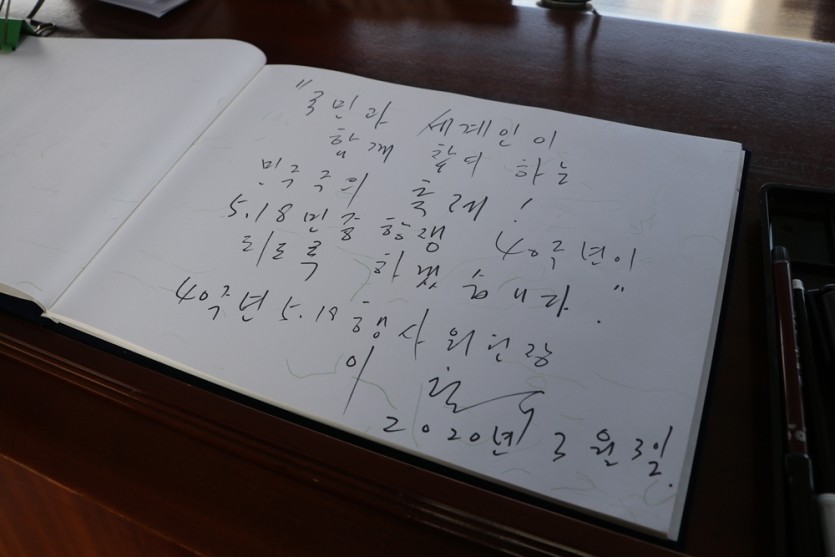 "국민과 세계인이
함께 참여 하는
민주주의 축제!
5.18민중항쟁 40주년이
되도록 하겠습니다."
40주년 5.18행사위원장
이
2020년 3월 3일.